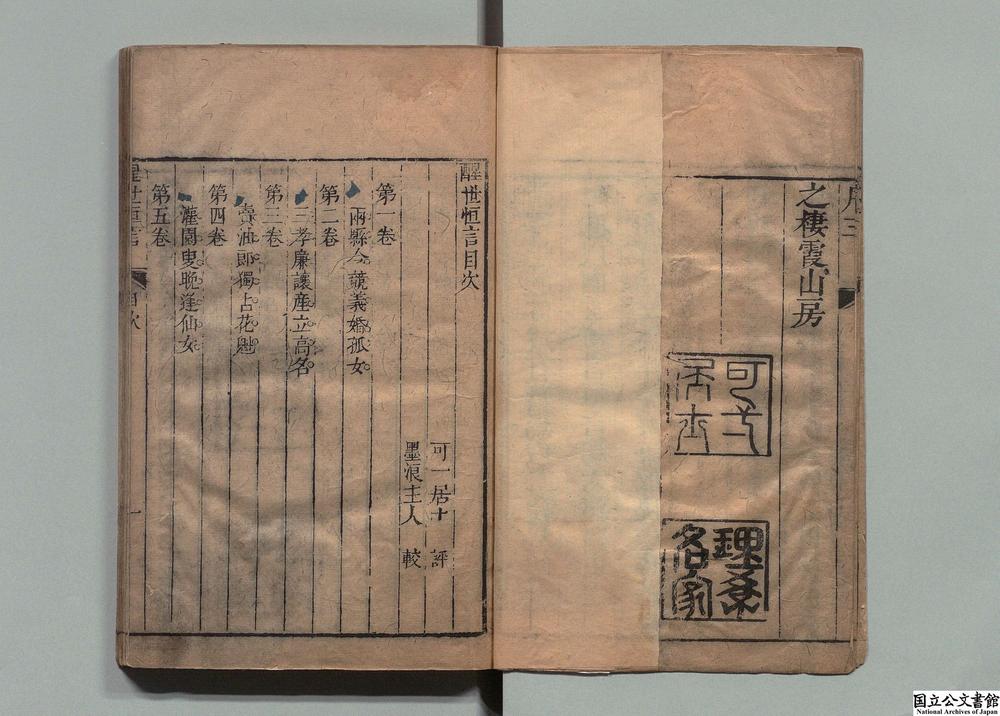 序三
之棲霞山房
可一居士
理學名家
醒世恒言目次
可一居士 評
墨浪主人 較
第一卷
兩縣令競義婚孤女
第二卷
三孝廉讓產立高名
第三卷
賣油郎獨占花魁
第四卷
灌園叟晚逢仙女
第五卷
醒世恒言
目次
一
国立公文書館
National Archives of Japan